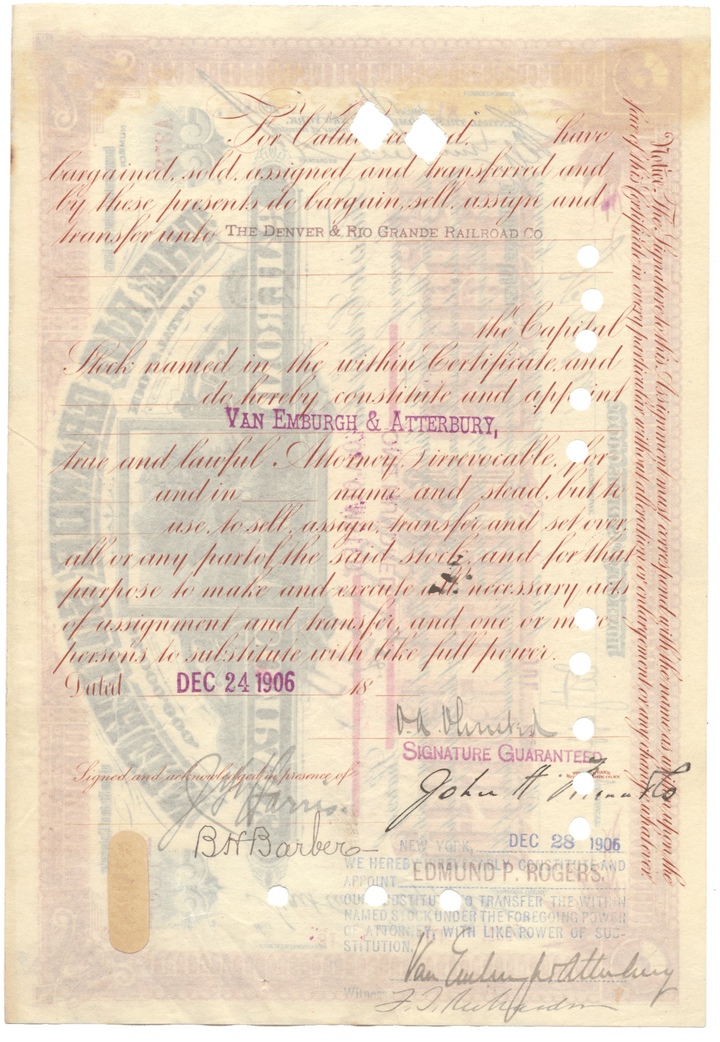 For Value Received, have
bargained, sold, assigned and transferred and
by these presents do bargain, sell, assign and
transfer unto THE DENVER & RIO GRANDE RAILROAD CO
the Capital
Stock named in the within Certificate, and
do hereby constitute and appoint
VAN EMBURGH & ATTERBURY,
true and lawful Attorney, irrevocable, for
and in name and stead, but to
use, to sell, assign, transfer and set over,
all or any part of the said stock, and for that
purpose to make and execute all necessary acts
of assignment and transfer, and one or more
persons to substitute with like full power.
Dated DEC 24 1906 18
SIGNATURE GUARANTEED
Signed and acknowledged in presence of
John H
J Harris
B H Barber
NEW YORK, DEC 28 1906
WE HEREBY IRREVOCABLY CONSTITUTE AND
APPOINT EDMUND P. ROGERS.
OUR SUBSTITUTE TO TRANSFER THE WITHIN
NAMED STOCK UNDER THE FOREGOING POWER
OF ATTORNEY, WITH LIKE POWER OF SUB-
STITUTION.
Van Emburgh & Atterbury
Witness
F. T. Richardson
Notice. The Signature to this Assignment must correspond with the name as written upon the
face of this Certificate in every particular without alteration or enlargement or any change whatever.